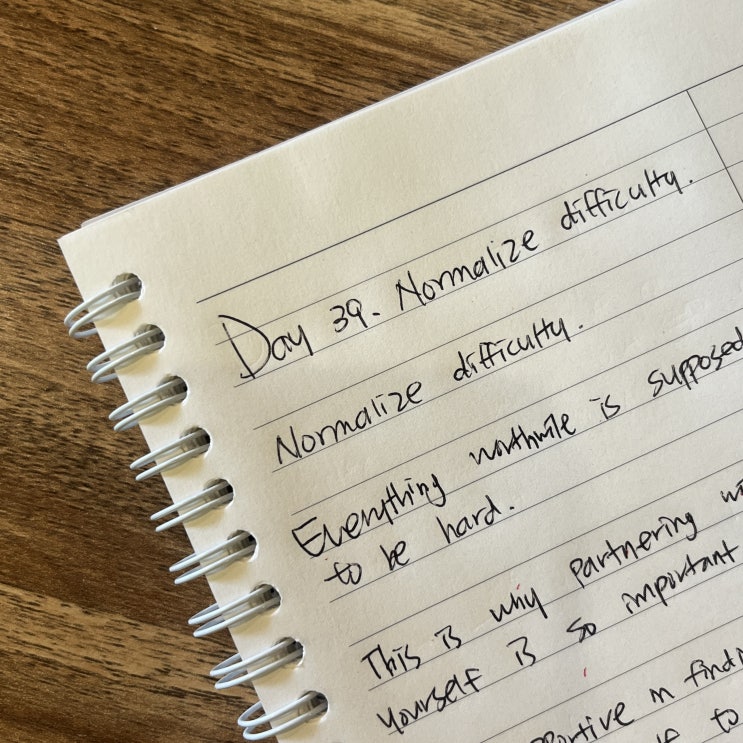 Day 39. Normalize difficulty.
Normalize difficulty.
Everything worthwile is supposed
to be hard.
This is why partnering
yourself is so important
in
to